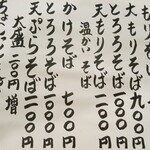 大もりそば 九〇〇円
とろろそば 一〇〇〇円
天もりそば
温かいそば
かけそば 七〇〇円
とろろそば 一〇〇〇円
天ぷらそば
大盛 二〇〇円増